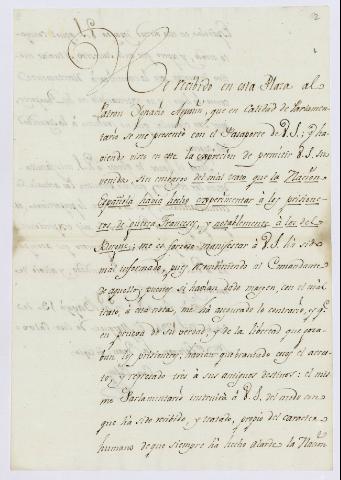 2
He recibido en esta Plaza al
Patron Ignacio Aguilin, que en Calidad de Parlamen-
tario se me presentó con el Pasaporte de V.S.; y ha-
viendo visto en este la expresion de permitir V.S. su
venida, sin embargo del mal trato que la Nacion
Española havia hecho experimentar à los prisione-
ros de guerra Franceses, y notablemente à los del
me es forzoso manifestar à V.S. ha sido
mal informado, pues reconviniendo al Comandante
de aquella, puesto se havian dado margen, con el mal
trato, à esta nota, me ha asegurado lo contrario, y q.e
en prueva de su verdad, y de la libertad que goza-
ban los prisioneros, havian quebrantado estos el arres-
to, y regresado tres à sus antiguos destinos: el mis-
mo Parlamentario instruirá à V.S. del modo con
que ha sido recibido, y tratado, propio del caracter
humano de que siempre ha hecho alarde la Nacion